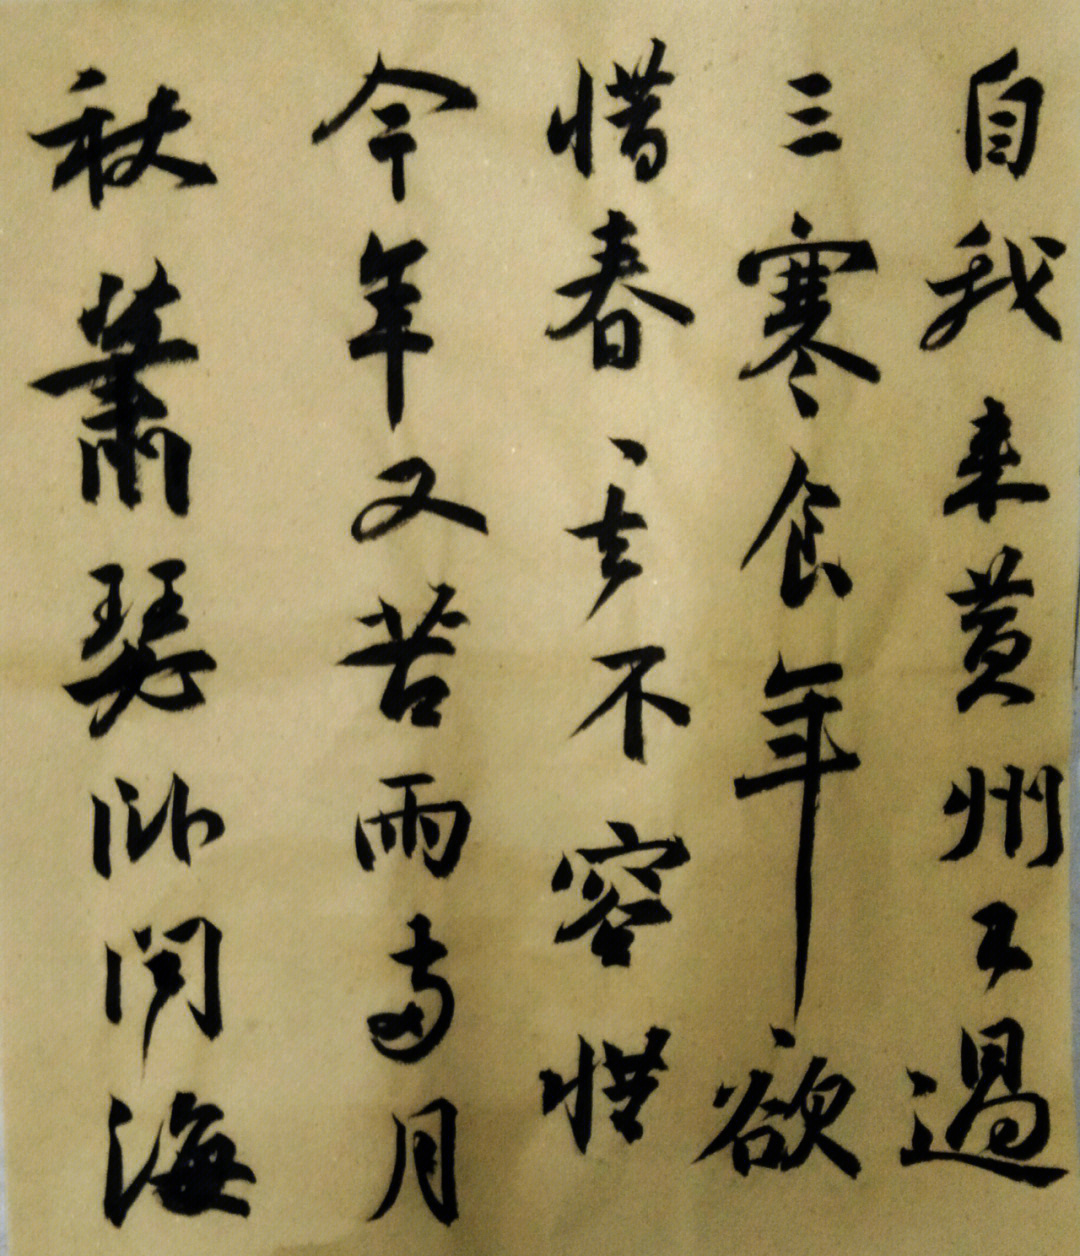 自我来黄州已過
三寒食年々欲
惜春々去不容惜
今年又苦雨兩月
秋蕭瑟卧聞海